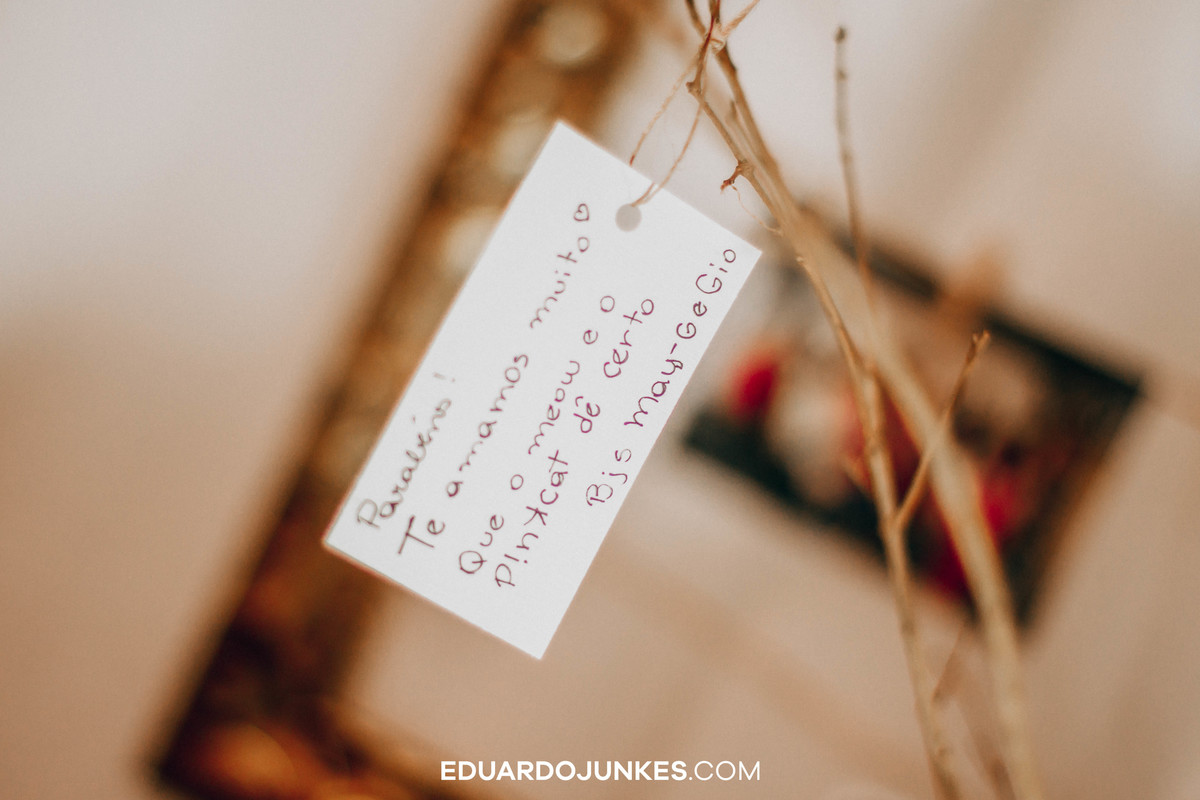 Parabéns!
Te amamos muito ♡
Que o meow e o
Pinkcat dê certo
Bjs May-Ge Gio
EDUARDOJUNKES.COM